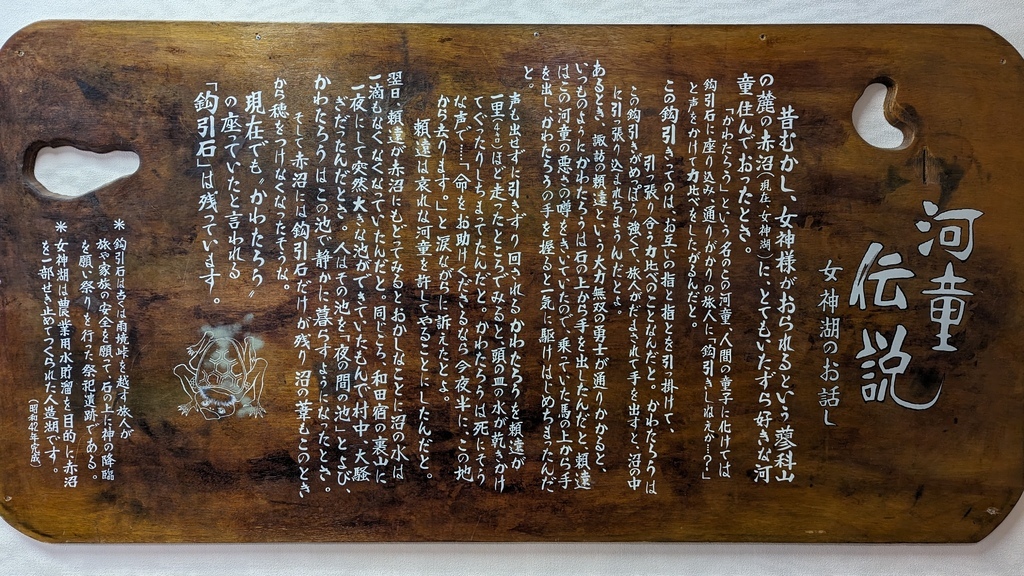 河童
伝説
女神湖のお話し
昔むかし、女神様がおられるという蓼科山
の麓の赤沼(現在、女神湖)に、とてもいたずら好きな河
童住んでおったとさ。
「かわたろう」という名のこの河童、人間の童子に化けては
鈎引石に座り込み、通りがかりの旅人に「鈎引きしねえか…?」
と声をかけて力比べをしたがるんだと。
この鈎引きってのは、お互いの指と指とを引っ掛けて、
引っ張り合う力比べのことなんだと。かわたろうは
この鈎引きがめっぽう強くて、旅人がだまされて手を出すと、沼の中
に引っ張り込まれちまうんだとよ。
あるとき、諏訪の頼達という大力無双の勇士が通りかかると、
いつものようにかわたろうは石の上から手を出したんだと。頼達
はこの河童の悪さの噂をきいていたので、乗っていた馬の上から手
を出し、かわたろうの手を握ると一気に駆けはじめちまったんだ
と。
声も出せずに引きずり回されるかわたろうを頼達が
一里(4㎞)ほど走ったところでみると、頭の皿の水が乾きかけ
てぐったりしちまってたんだと。かわたろうは死にそう
な声で「命をお助けくださるなら今夜半に、この地
から立ち去ります。」と涙ながらに訴えたとよ。
頼達は哀れな河童を許してやることにしたんだと。
翌日、頼達が赤沼にもどってみるとおかしなことに沼の水は
一滴もなくなくなっていたんだと。同じころ、和田宿の裏山に
一夜にして突然大きな池ができていたんで村中、大騒
ぎだったんだとさ。人はその池を「夜の間の池」とよび、
かわたろうは、この池で静かに暮らすようになったとさ。
そして赤沼には鈎引石だけが残り、沼の葦もこのとき
から穂をつけなくなったそうな。
現在でも〝かわたろう〟
の座っていたと言われる
「鈎引石」は残っています。
＊鈎引石は古くは雨境峠を越す旅人が
旅や家族の安全を願って、石の上に神の降臨
を願い祭りを行った祭祀遺跡である。
＊女神湖は農業用水貯溜を目的に赤沼
を一部せき止めてつくられた人造湖です。
(昭和42年完成)